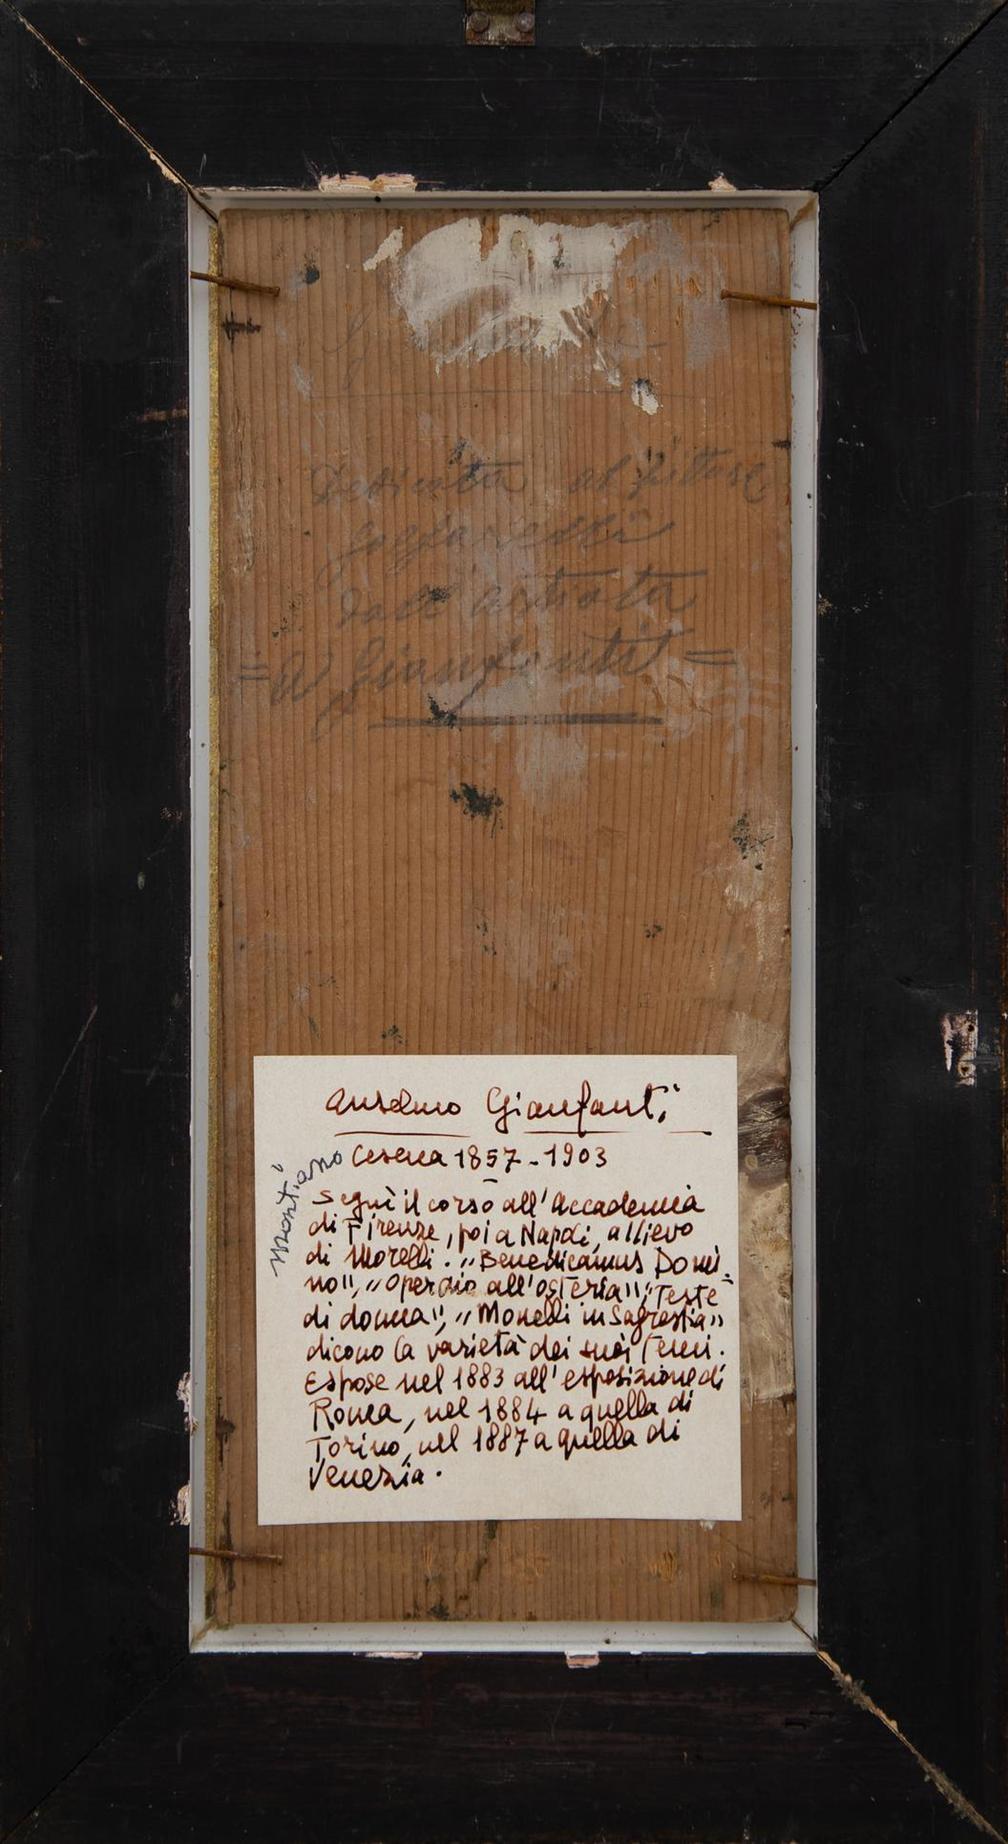 Dedicata al pittore
dall'artista
= A Gianfanti =
Anselmo Gianfanti
Montiano Cesena 1857-1903
Seguì il corso all'Accademia
di Firenze, poi a Napoli, allievo
di Morelli. "Benedicamus Domi-
no", "Operaio all'osteria", "Teste
di donna", "Monelli in Sagrestia"
dicono la varietà dei suoi temi.
Espose nel 1883 all'esposizione di
Roma, nel 1884 a quella di
Torino, nel 1887 a quella di
Venezia.